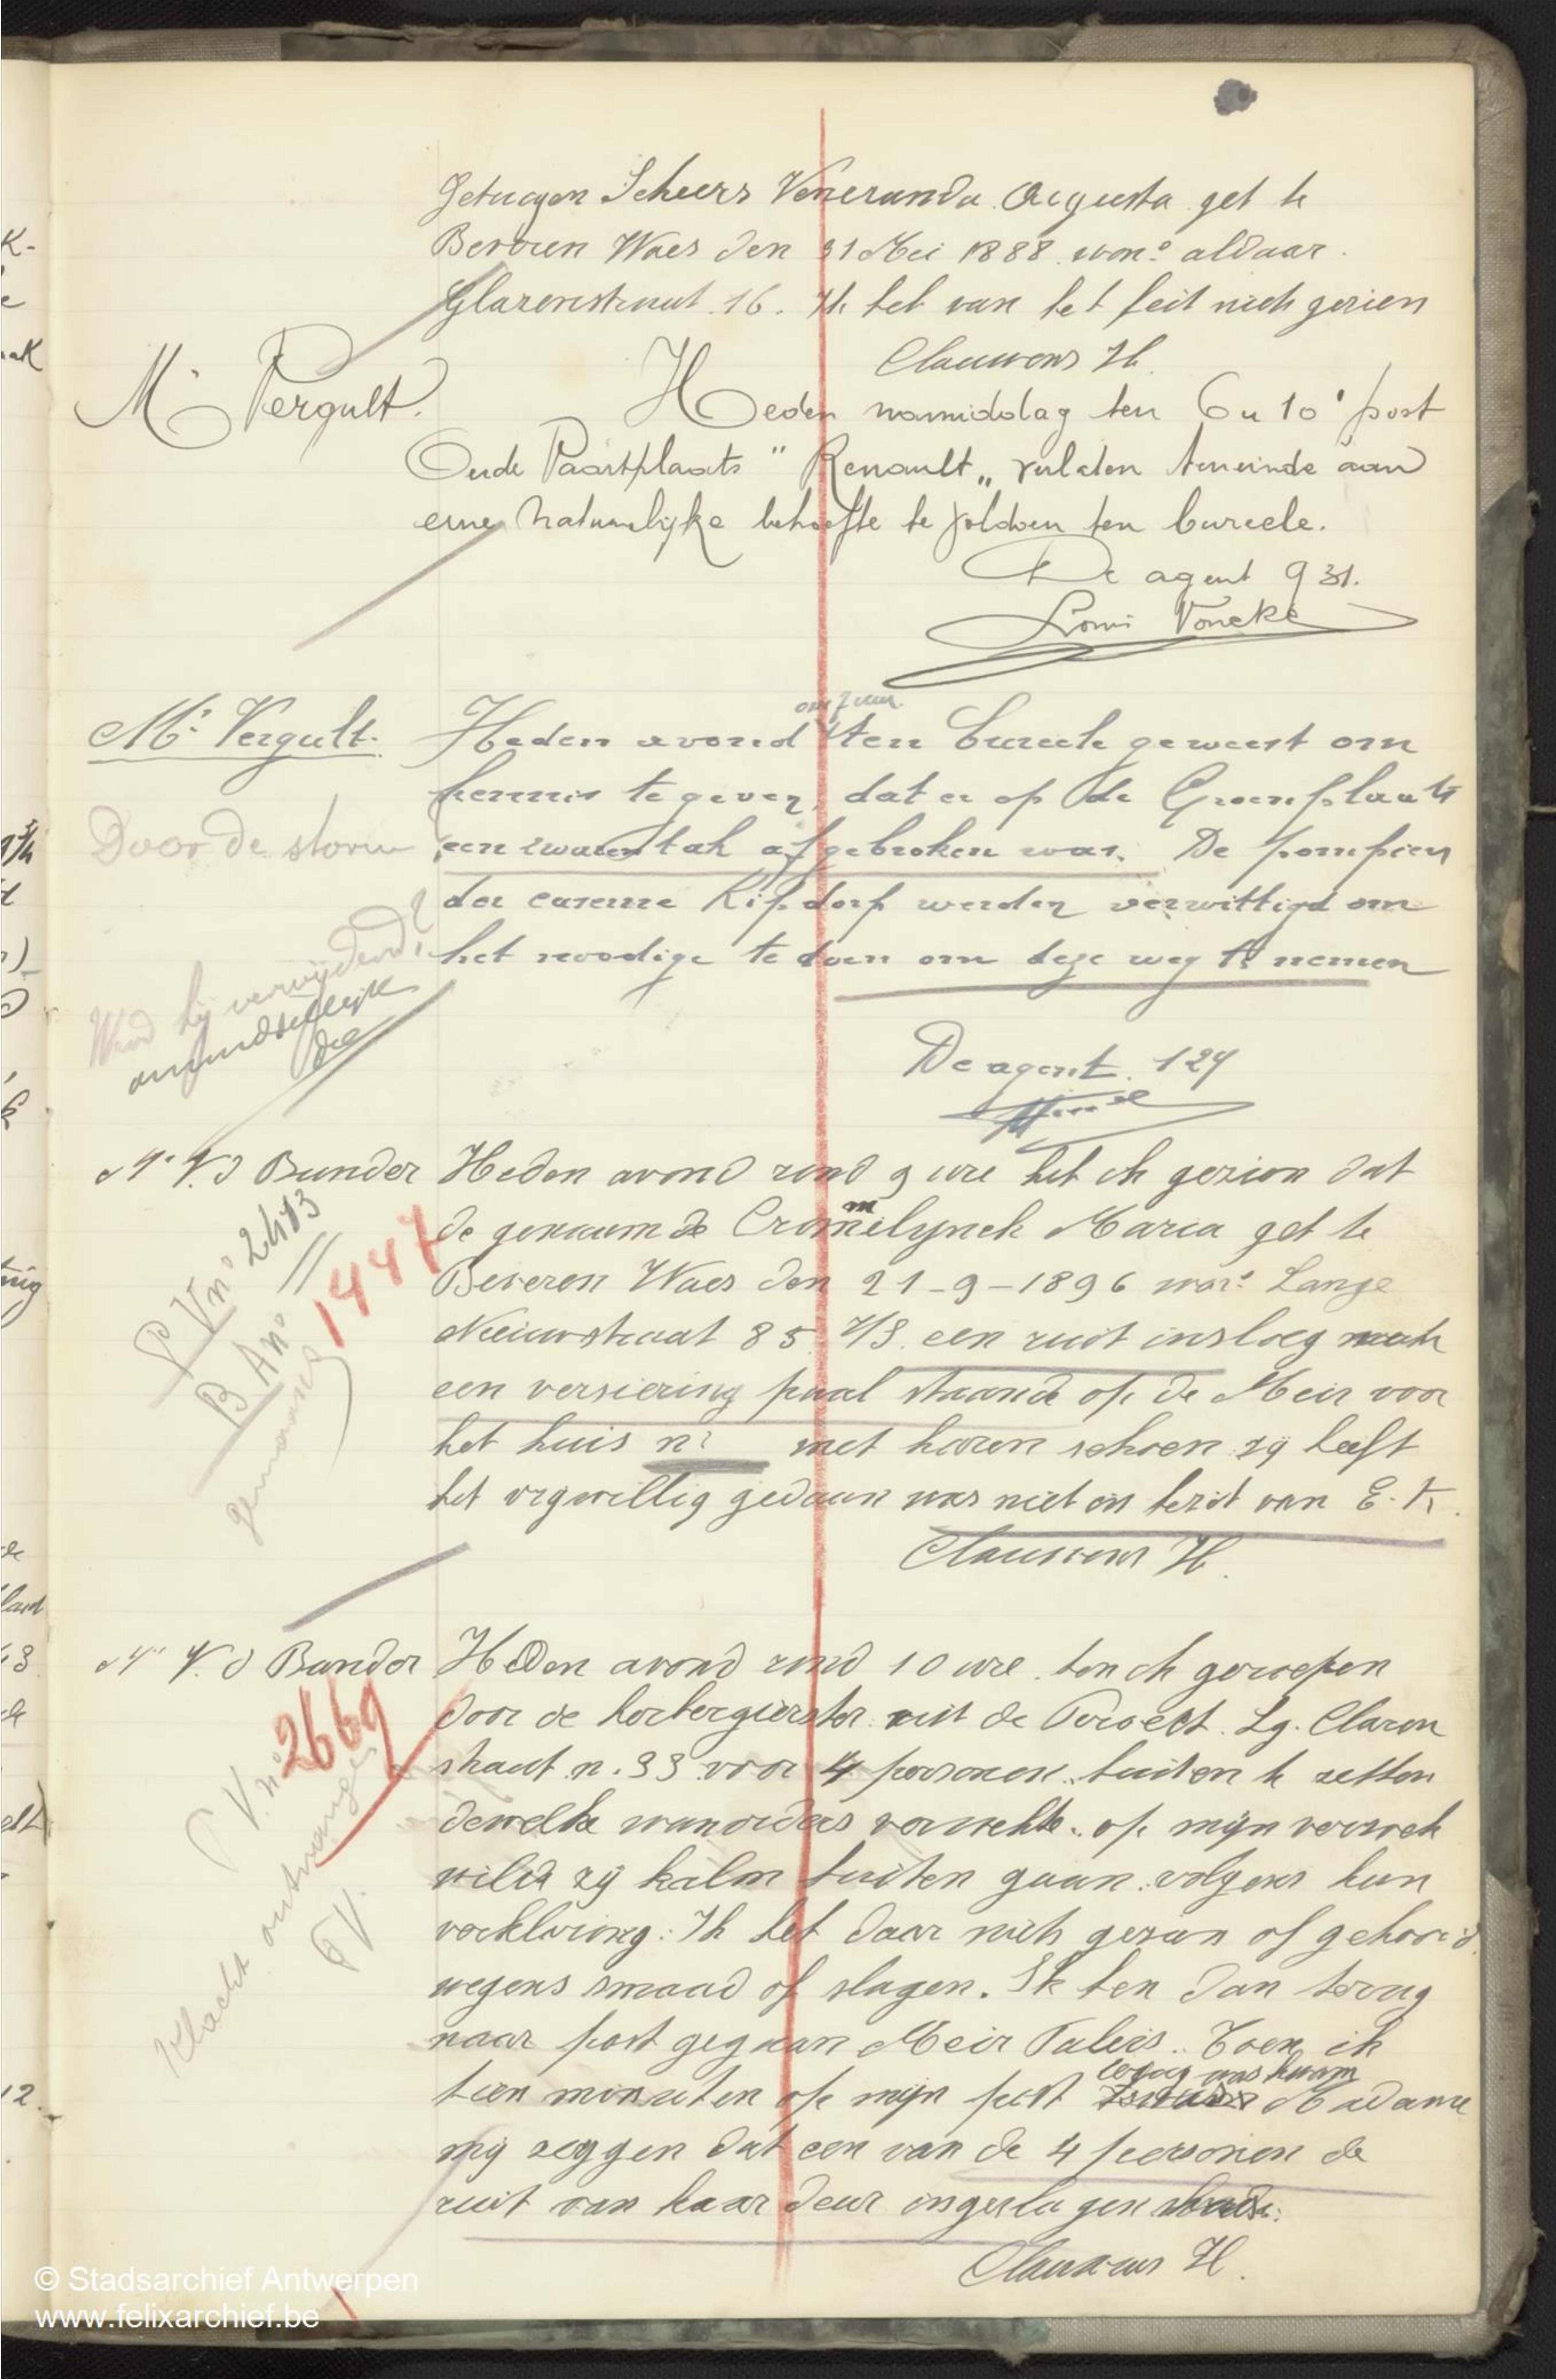 Getuigen Scheers Veneranda Augusta geb te
Beveren Waes den 31 Mei 1888 won.e aldaar.
Glazenstraat 16. Ik heb van het feit niets gezien
Clauwens H.
Mr Vergult.
Heden namiddag ten 6 u 10' post
Oude Vaartplaats "Renault" verlaten teneinde aan
eene natuurlijke behoefte te voldoen ten bureele.
De agent 931.
Voncke
Mr Vergult.
om 7 uur
Heden avond ten bureele geweest om
kennis te geven, dat er op de Groenplaats
Door de storm
een zware tak afgebroken was. De pompiers
der caserne Kipdorp werden verwittigd om
het noodige te doen om deze weg te nemen
Werd hij verwijderd?
onmiddellijk
De agent 124
Mr V.d Bunder
Heden avond rond 9 ure heb ik gezien dat
de genaamde Crommelynck Maria geb te
Beveren Waes den 21-9-1896 won.e Lange
Nieuwstraat 85. Z/B. een ruit insloeg
een versiering paal staande op de Meir voor
het huis nr met haren schoen zij heeft
het vrijwillig gedaan was niet in bezit van E.K.
Clauwens H.
P Vn° 2413
B An° 11
1447
genomen
Mr V.d Bunder
Heden avond rond 10 ure ben ik geroepen
door de herbergierster uit de Lg. Claren
straat n. 33 voor 4 personen buiten te zetten
dewelke wanorders verwekte. op mijn verzoek
wilde zij kalm buiten gaan volgens hun
verklaring. Ik heb daar niets gezien of gehoord
wegens smaad of slagen. Ik ben dan terug
naar post gegaan Meir Paleis. Toen ik
terug was kwam
tien minuten op mijn post Madame
mij zeggen dat een van de 4 personen de
ruit van haar deur ingeslagen
Clauwens H.
P V. n° 2669
Klacht ontvangen
PV.
© Stadsarchief Antwerpen
www.felixarchief.be